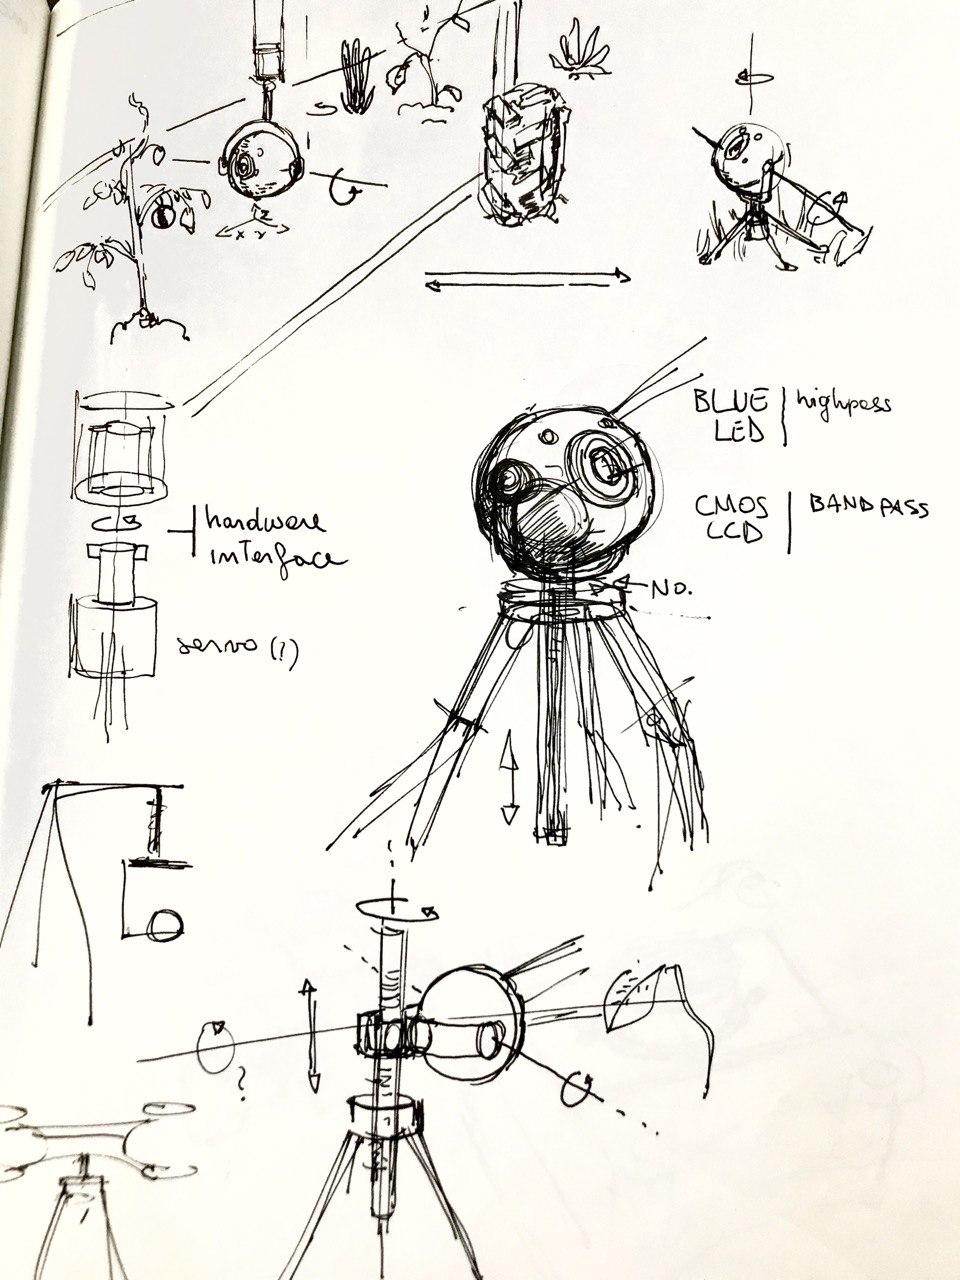 BLUE | highpass
LED
CMOS | BANDPASS
LCD
hardware
interface
No.
servo (?)
?